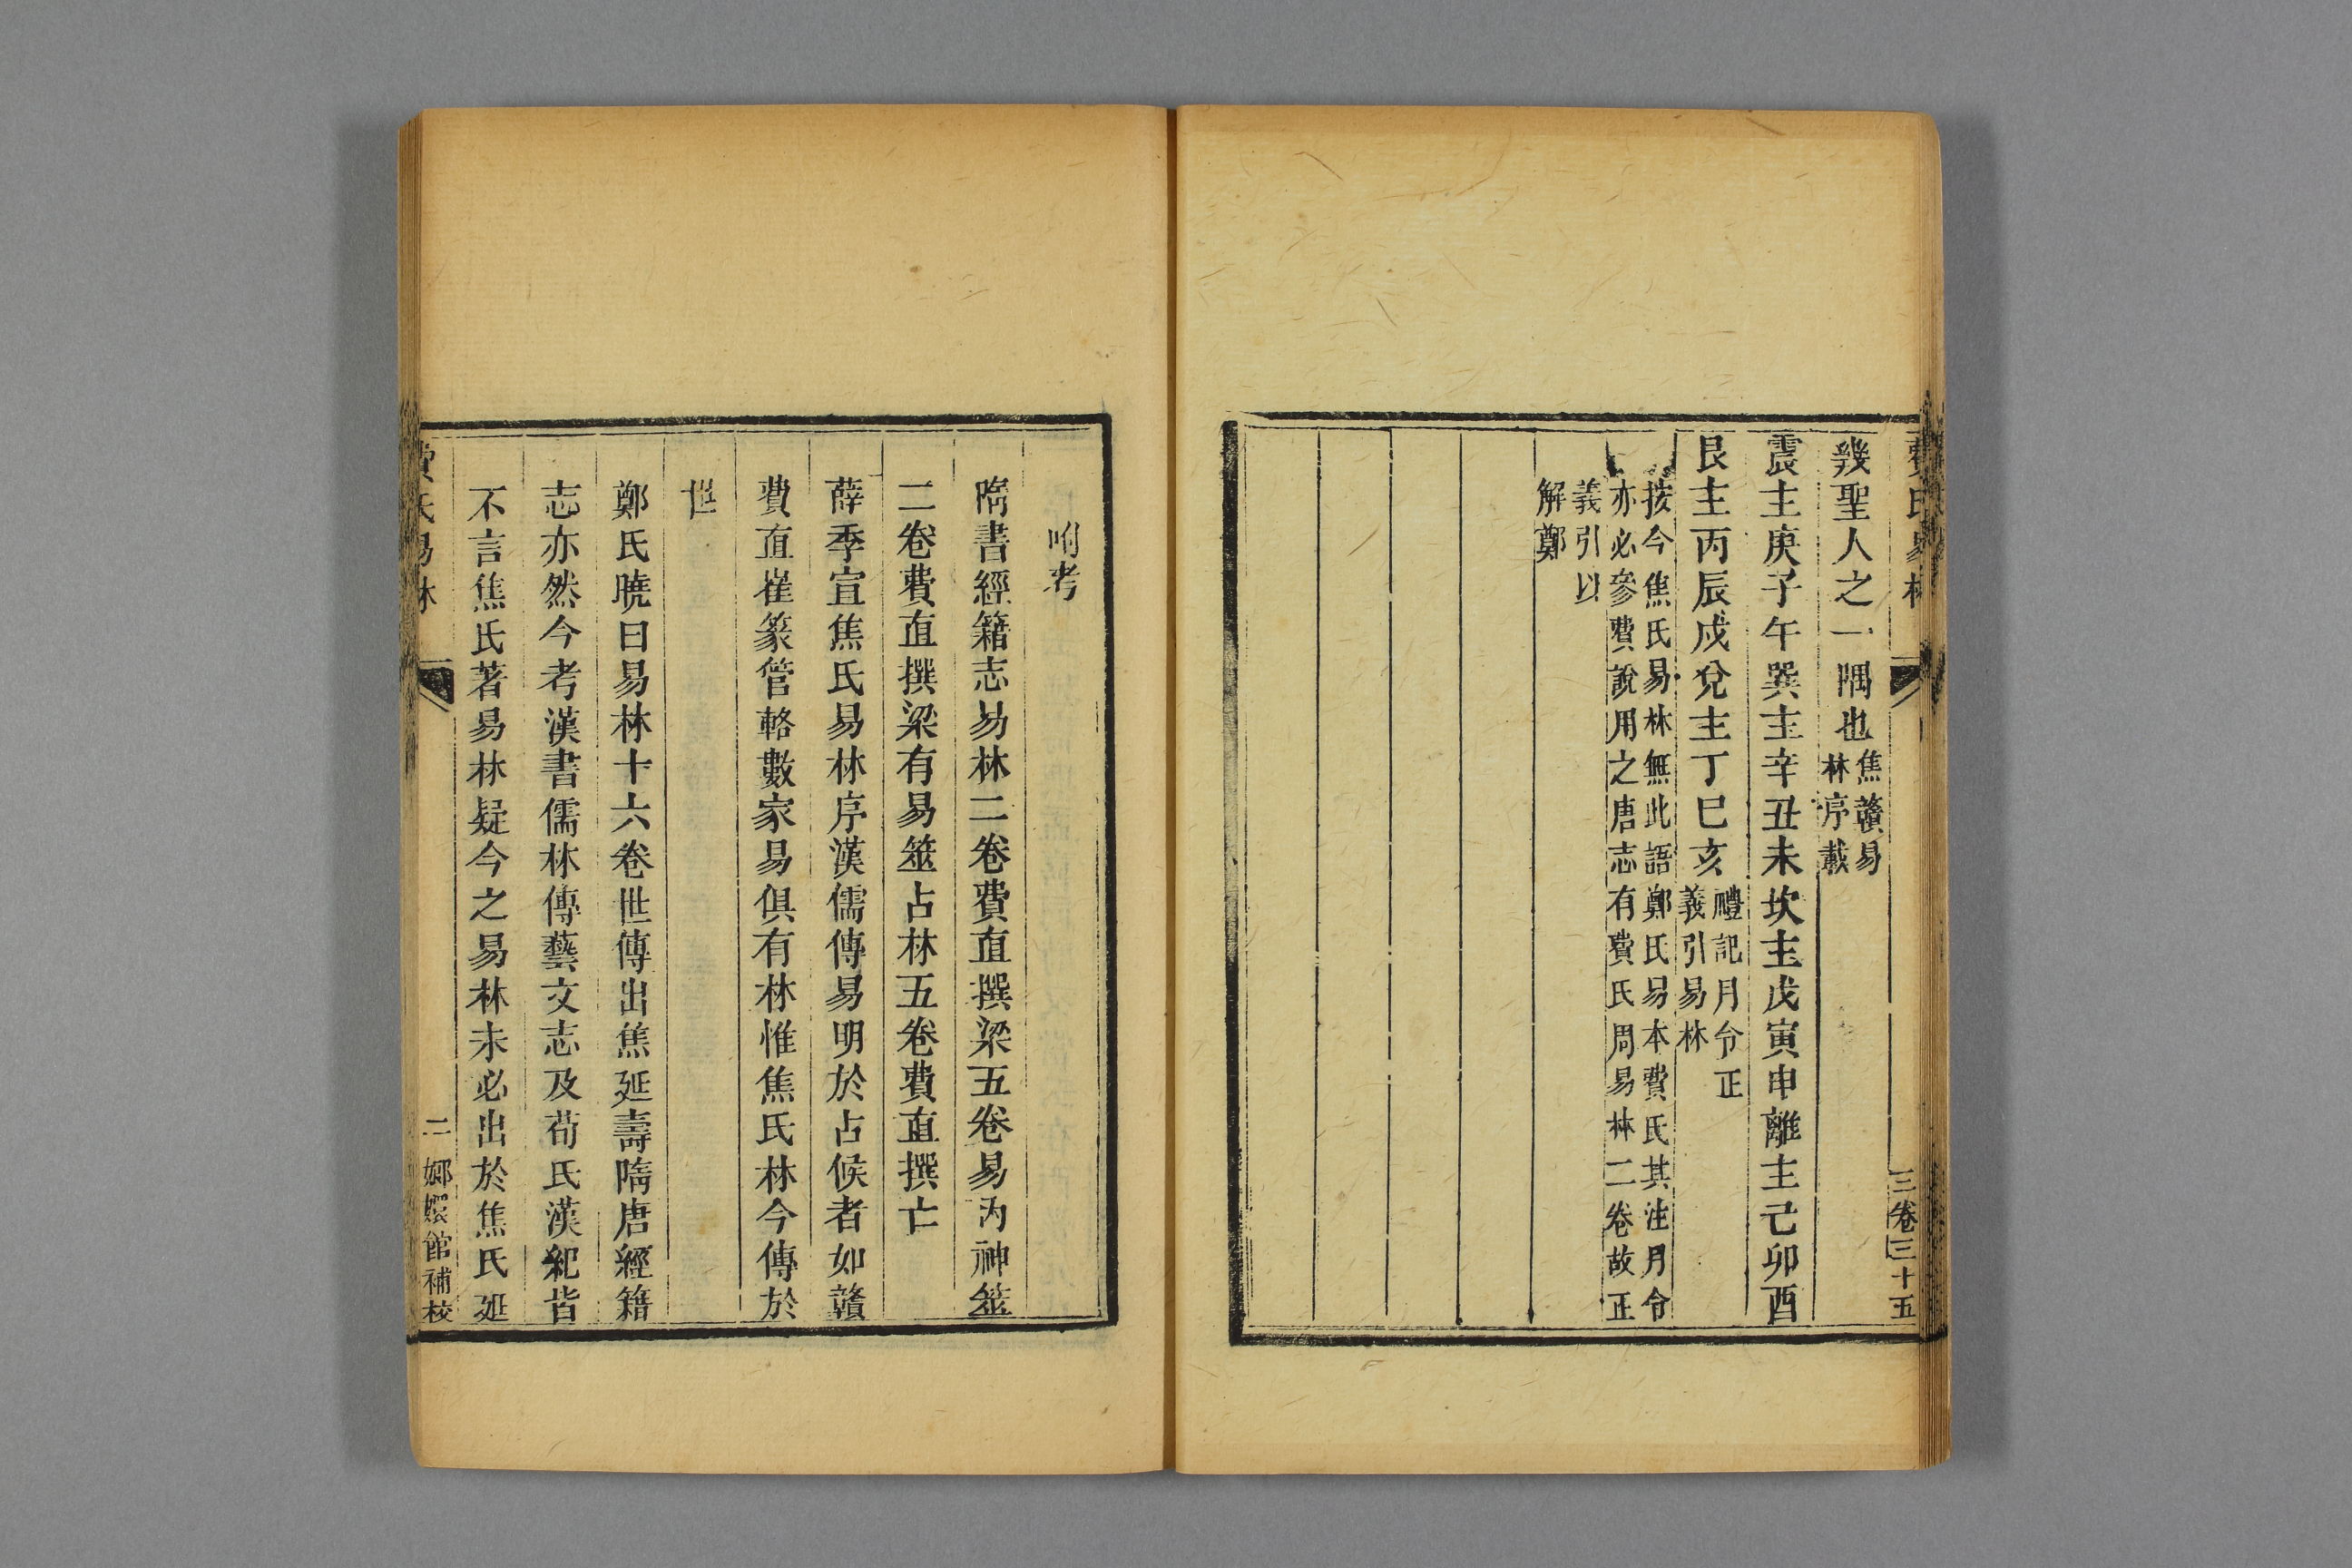 幾聖人之一隅也焦贛易林序載
震主庚子午巽主辛丑未坎主戊寅申離主己卯酉
艮主丙辰戌兌主丁巳亥禮記月令正義引易林
按今焦氏易林無此語鄭氏易本費氏其注月令
亦必參費說用之唐志有費氏周易林二卷故正
義引以
解鄭
三卷三十五
附考
隋書經籍志易林二卷費直撰梁五卷易內神筮
二卷費直撰梁有易筮占林五卷費直撰亡
薛季宣焦氏易林序漢儒傳易明於占候者如贛
費直崔篆管輅數家易俱有林惟焦氏林今傳於
世
鄭氏曉曰易林十六卷世傳出焦延壽隋唐經籍
志亦然今考漢書儒林傳藝文志及荀氏漢紀皆
不言焦氏著易林疑今之易林未必出於焦氏延
費氏易林
二
嫏嬛館補校